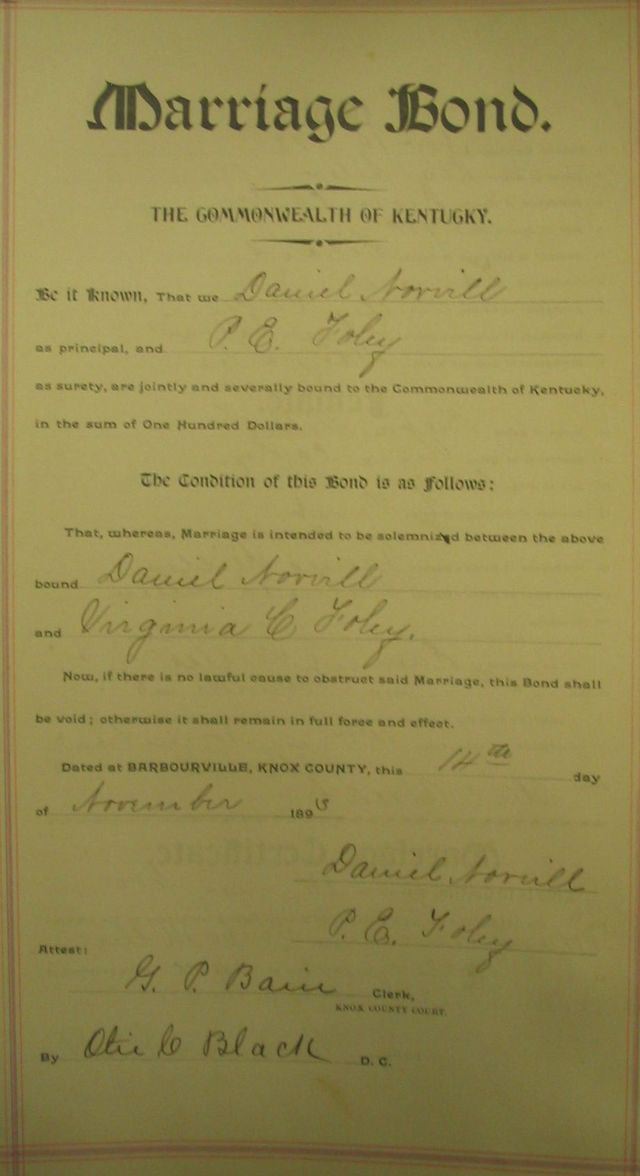 Marriage Bond.
THE COMMONWEALTH OF KENTUCKY.
Be it Known, That we Daniel Norvill
as principal, and P. E. Foley
as surety, are jointly and severally bound to the Commonwealth of Kentucky,
in the sum of One Hundred Dollars.
The Condition of this Bond is as Follows:
That, whereas, Marriage is intended to be solemnized between the above
bound Daniel Norvill
and Virginia C Foley.
Now, if there is no lawful cause to obstruct said Marriage, this Bond shall
be void; otherwise it shall remain in full force and effect.
Dated at BARBOURVILLE, KNOX COUNTY, this 14th day
of November 189
Daniel Norvill
P. E. Foley
Attest:
G. P. Bain Clerk,
KNOX COUNTY COURT.
By Black D. C.